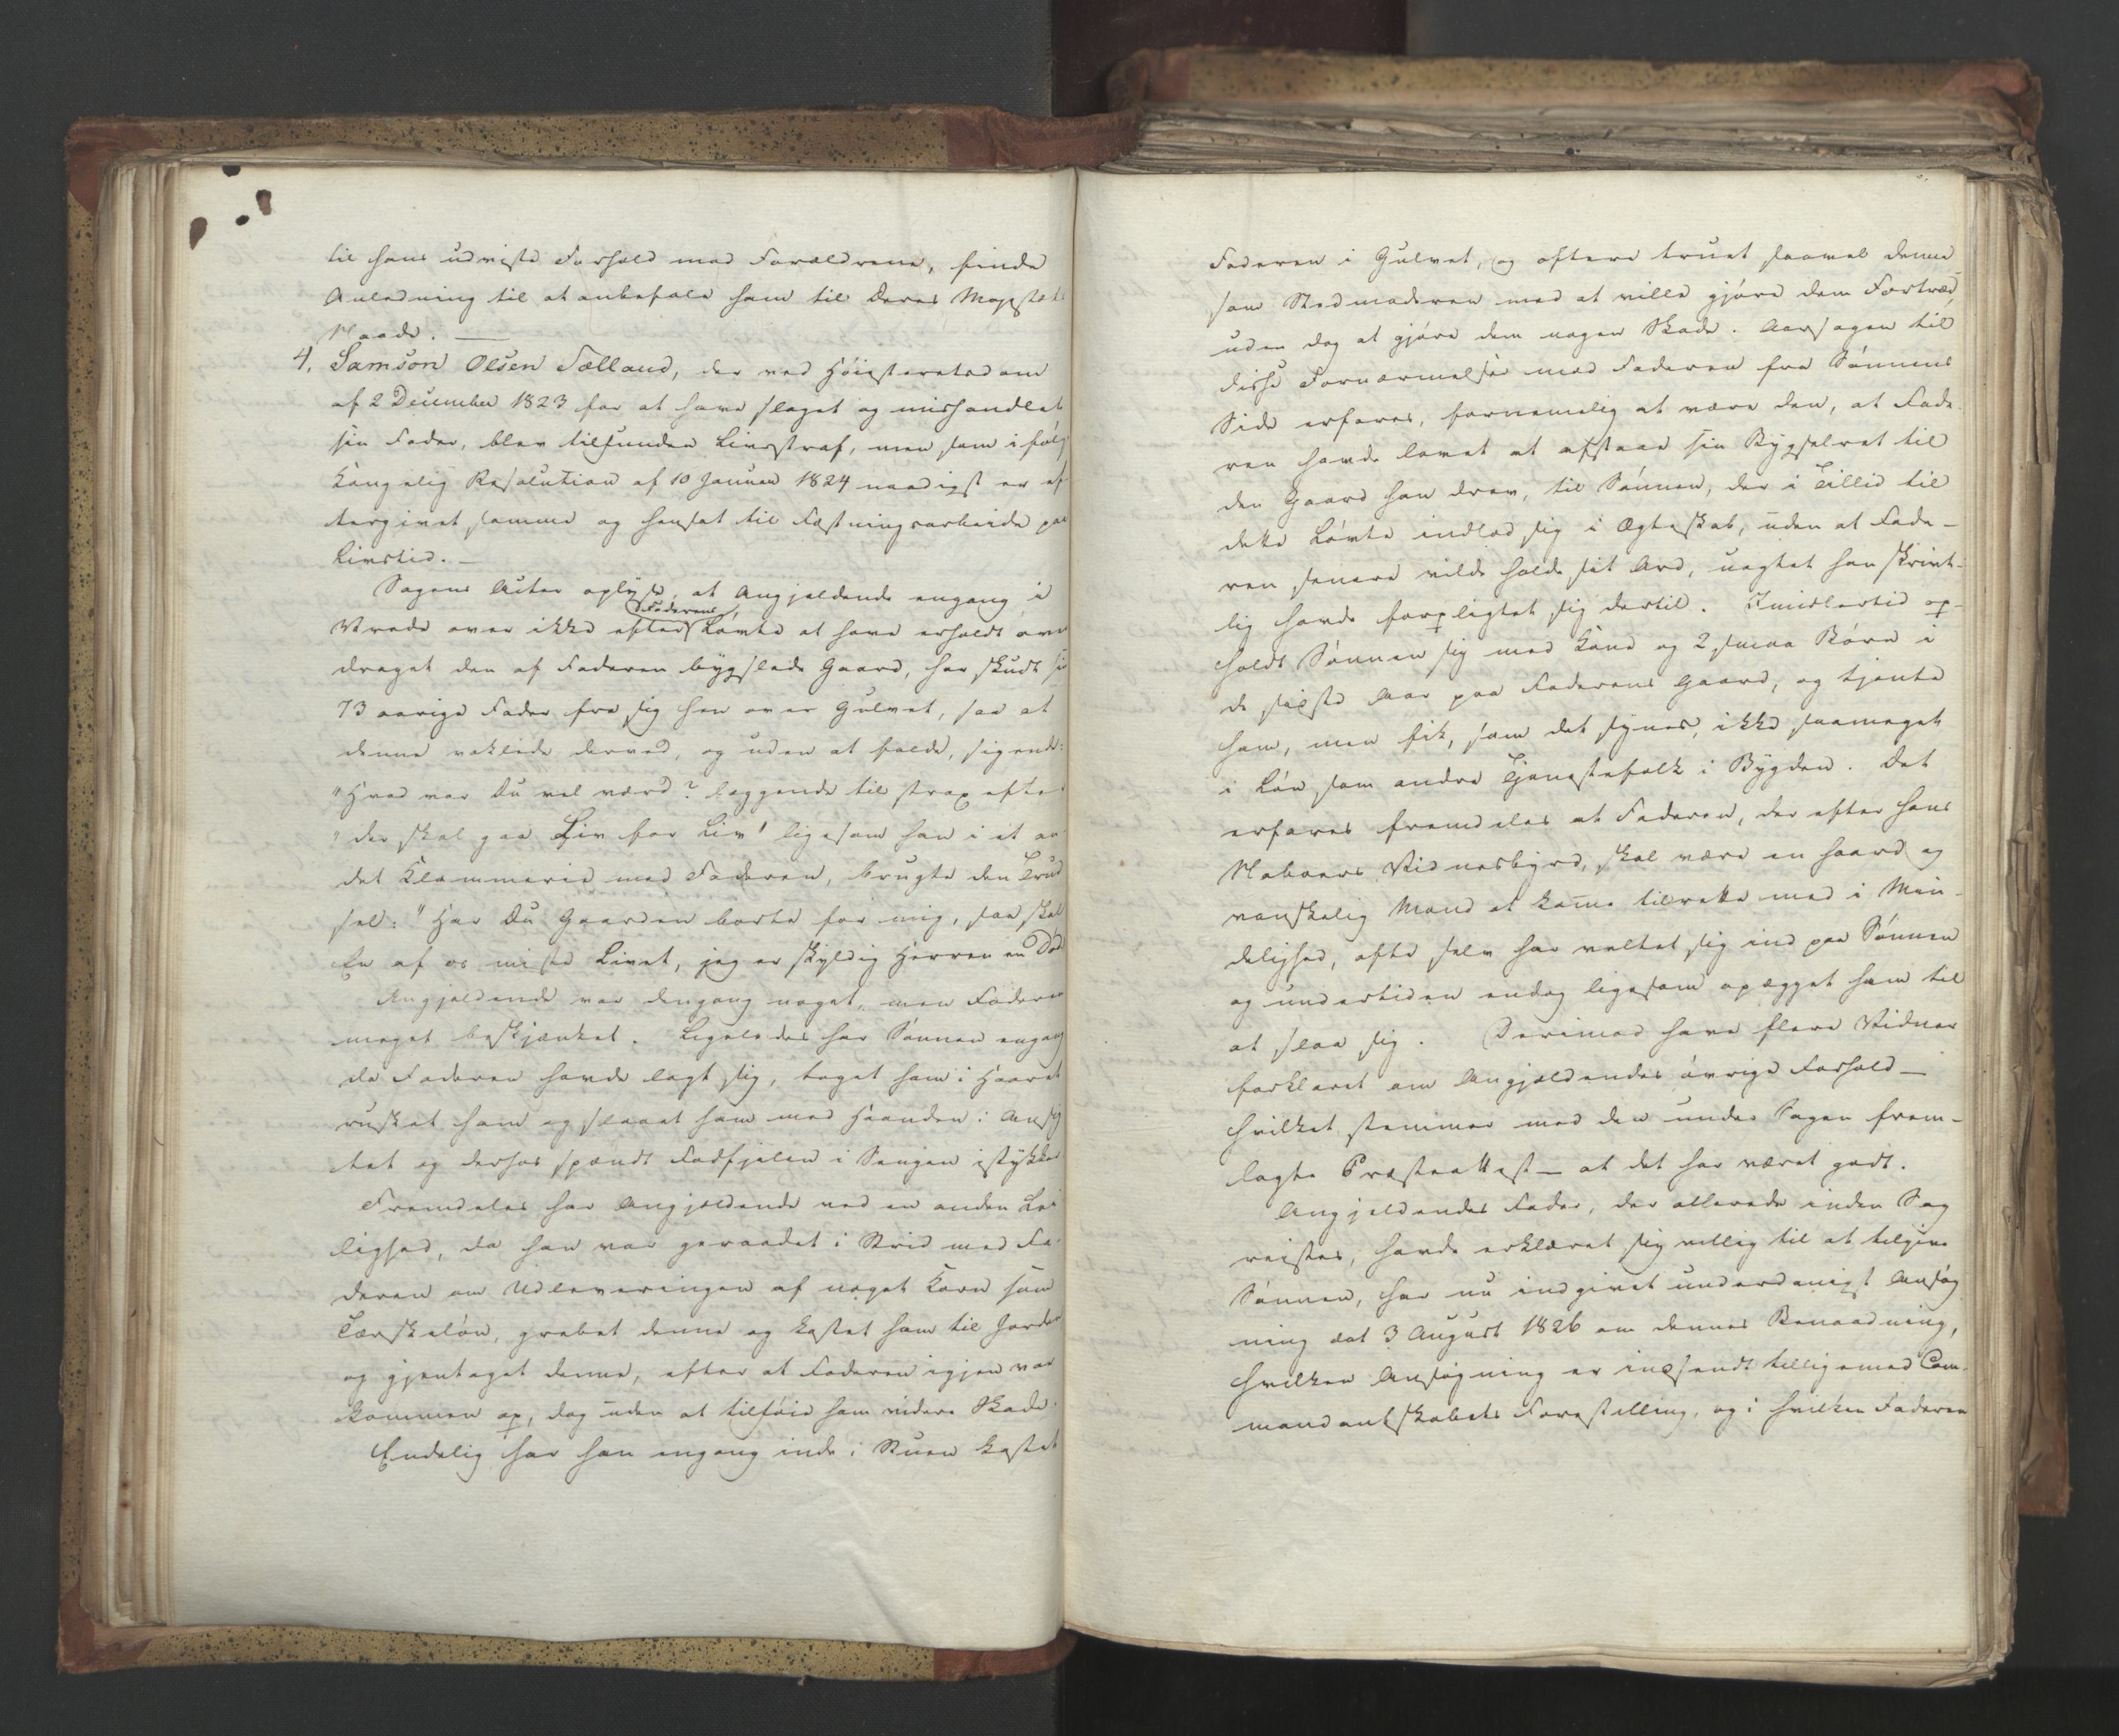 til hans udviste Forhold mod Forældrene, finde
Anledning til at anbefale ham til Deres Majestæts
Naade. —
4. Samson Olsen Sælland, der ved Høiesteretsdom
af 2 December 1823 for at have slaget og mishandlet
sin Fader, blev tilfunden Livsstraf, men som ifølg
Kongelig Resolution af 10 Januar 1824 naadigst er ef
tergivet samme og hensat til Fæstningsarbeide paa
Livstid. —
Sagens Acter oplyse, at Angjældende engang i
Vrede over ikke efter Faderens Løvte at have erholdt over
draget den af Faderen bygslede Gaard, har skudt sin
73 aarige Fader fra sig hen over Gulvet, saa at
denne vaklede derved, og uden at falde, sigende:
"Hvad var Du vel værd? læggende til strax efter
"der skal gaa Liv for Liv" ligesom han i et an
det Klammerie med Faderen, brugte den Trud
sel: "Har Du Gaarden borte for mig, saa skal
En af os miste Livet, jeg er skyldig Herren en Død
Angjældende var dengang noget, men Faderen
meget beskjænket. Ligeledes har Sønnen engang
da Faderen havde lagt sig, taget ham i Haaret
rusket ham og slaaet ham med Haanden i Ansig
tet og derhos spændt Fodfjelen i Sengen istykker
Fremdeles har Angjældende ved en anden Lei
lighed, da han var geraadet i Strid med Fa-
deren om Udleveringen af noget Korn som
Tærskeløn, grebet denne og kastet ham til Jorden
og gjentaget denne, efter at Faderen igjen var
kommen op, dog uden at tilføie ham videre Skade.
Endelig har han engang inde i Stuen kastet
Faderen i Gulvet, og oftere truet saavel denne
som Stedmoderen med at ville gjøre dem Fortræd
uden dog at gjøre dem nogen Skade. Aarsagen til
disse Fornærmelser mod Faderen fra Sønnens
Side erfares, fornemelig at være den, at Fade
ren havde lovet at afstaae sin Bygselret til
den Gaard han drev, til Sønnen, der i Tillid til
dette Løvte indlod sig i Ægteskab, uden at Fade-
ren senere vilde holde sit Ord, uagtet han skrivt-
lig havde forpligtet sig dertil. Imidlertid op-
holdt Sønnen sig med Kone og 2 smaa Børn i
de sidste Aar paa Faderens Gaard, og tjente
ham, men fik, som det synes, ikke saameget
i Løn som andre Tjenestefolk i Bygden. Det
erfares fremdeles at Faderen, der efter hans
Naboers Vidnesbyrd, skal være en haard og
vanskelig Mand at kome tilrette med i Min-
delighed, ofte selv har veltet sig ind paa Sønnen
og undertiden endog ligesom opægget ham til
at slaa sig. Derimod have flere Vidner
forklaret om Angjældendes øvrige Forhold —
hvilket stemmer med den under Sagen frem-
lagte Præsteattest — at det har været godt.
Angjeldendes Fader, der allerede inden Sag
reistes, havde erklæret sig villig til at tilgive
Sønnen, har nu indgivet underdanigst Ansøg
ning dat 3 August 1826 om dennes Benaadning,
hvilken Ansøgning er indsendt tilligemed Com-
mandantskabets Forestilling, og i hvilken Faderen